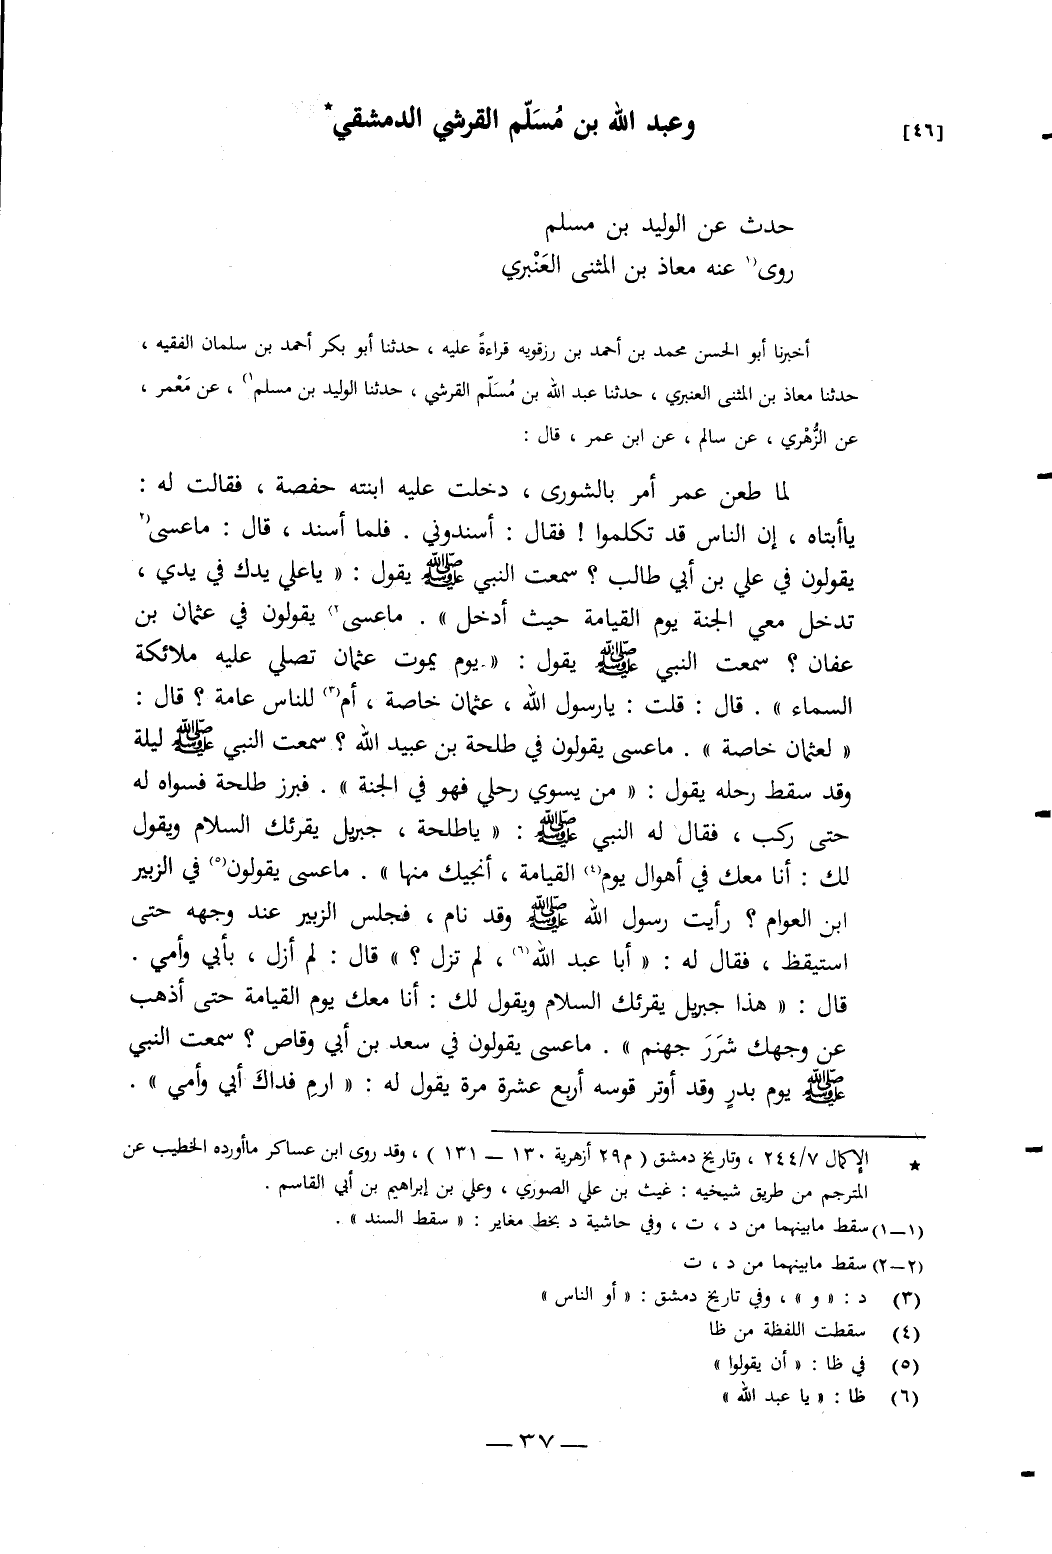 [٤٦] وعبد الله بن مُسَلّم القرشي الدمشقي*
حدث عن الوليد بن مسلم
روى(١ عنه معاذ بن المثنى العَنْبري
أخبرنا أبو الحسن محمد بن أحمد بن رزقويه قراءةً عليه ، حدثنا أبو بكر أحمد بن سلمان الفقيه ،
حدثنا معاذ بن المثنى العنبري ، حدثنا عبد الله بن مُسَلّم القرشي ، حدثنا الوليد بن مسلم١) ، عن مَعْمر ،
عن الزُّهْري ، عن سالم ، عن ابن عمر ، قال :
لما طعن عمر أمر بالشورى ، دخلت عليه ابنته حفصة ، فقالت له :
ياأبتاه ، إن الناس قد تكلموا ! فقال : أسندوني . فلما أسند ، قال : ماعسى(٢
يقولون في علي بن أبي طالب ؟ سمعت النبي ﷺ يقول : « ياعلي يدك في يدي ،
تدخل معي الجنة يوم القيامة حيث أدخل » . ماعسى٢) يقولون في عثمان بن
عفان ؟ سمعت النبي ﷺ يقول : « يوم يموت عثمان تصلي عليه ملائكة
السماء » . قال : قلت : يارسول الله ، عثمان خاصة ، أم(٣) للناس عامة ؟ قال :
« لعثمان خاصة » . ماعسى يقولون في طلحة بن عبيد الله ؟ سمعت النبي ﷺ ليلة
وقد سقط رحله يقول : « من يسوي رحلي فهو في الجنة » . فبرز طلحة فسواه له
حتى ركب ، فقال له النبي ﷺ : « ياطلحة ، جبريل يقرئك السلام ويقول
لك : أنا معك في أهوال يوم(٤) القيامة ، أنجيك منها » . ماعسى يقولون(٥) في الزبير
ابن العوام ؟ رأيت رسول الله ﷺ وقد نام ، فجلس الزبير عند وجهه حتى
استيقظ ، فقال له : « أبا عبد الله(٦) ، لم تزل ؟ » قال : لم أزل ، بأبي وأمي .
قال : « هذا جبريل يقرئك السلام ويقول لك : أنا معك يوم القيامة حتى أذهب
عن وجهك شَرَرَ جهنم » . ماعسى يقولون في سعد بن أبي وقاص ؟ سمعت النبي
ﷺ يوم بدرٍ وقد أوتر قوسه أربع عشرة مرة يقول له : « ارمِ فداكَ أبي وأمي » .
★ الإكمال ٢٤٤/٧ ، وتاريخ دمشق ( م٢٩ أزهرية ١٣٠ — ١٣١ ) ، وقد روى ابن عساكر ماأورده الخطيب عن
المترجم من طريق شيخيه : غيث بن علي الصوري ، وعلي بن إبراهيم بن أبي القاسم .
(١—١) سقط مابينهما من د ، ت ، وفي حاشية د بخط مغاير : « سقط السند » .
(٢—٢) سقط مابينهما من د ، ت
(٣) د : « و » ، وفي تاريخ دمشق : « أو الناس »
(٤) سقطت اللفظة من ظا
(٥) في ظا : « أن يقولوا »
(٦) ظا : « يا عبد الله »
— ٣٧ —